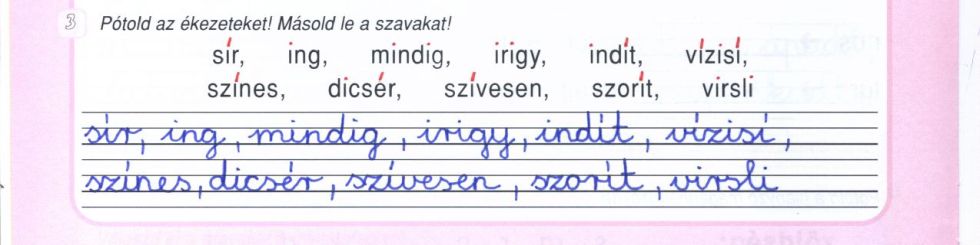 3 Pótold az ékezeteket! Másold le a szavakat!
sír, ing, mindig, irigy, indít, vízisí,
színes, dicsér, szívesen, szorít, virsli
sír, ing, mindig, irigy, indít, vízisí,
színes, dicsér, szívesen, szorít, virsli